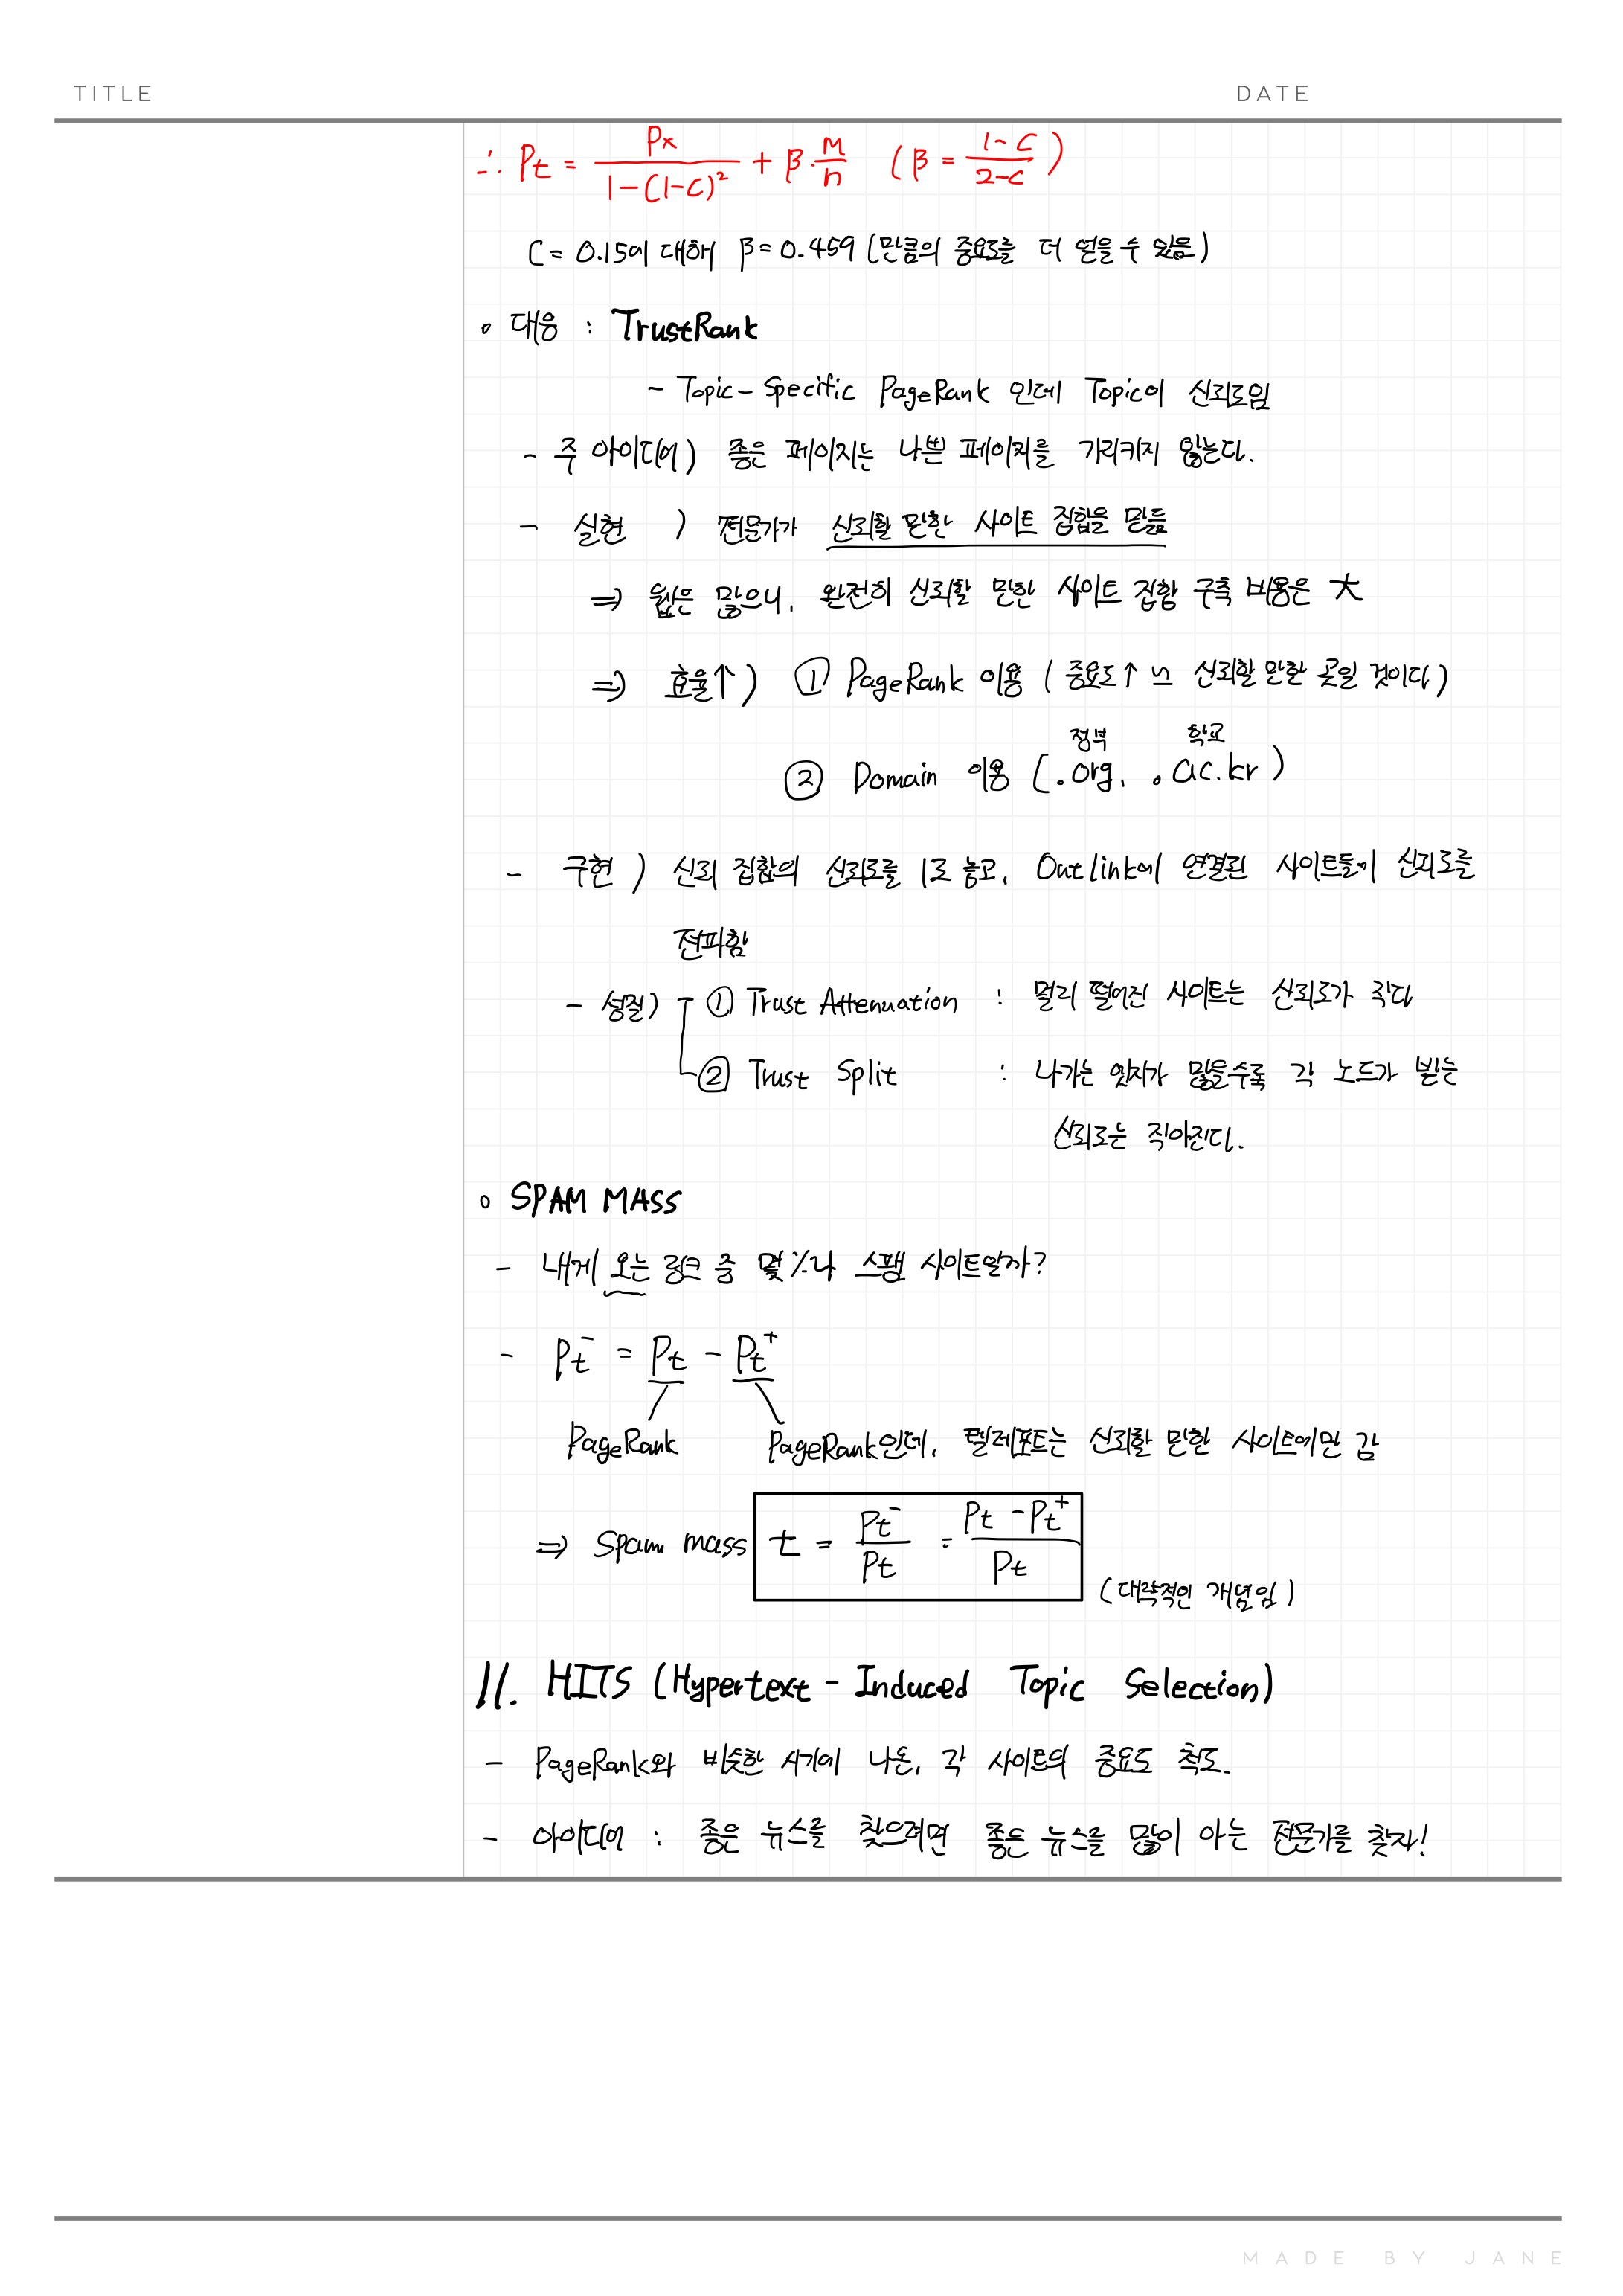 TITLE DATE
∴ Pt = Px / (1-(1-C)²) + β · M/n (β = (1-C)/(2-C))
C = 0.15에 대해 β = 0.459 (만큼의 중요도를 더 얻을 수 있음)
∘ 대응 : TrustRank
- Topic-Specific PageRank 인데 Topic이 신뢰도임
- 주 아이디어) 좋은 페이지는 나쁜 페이지를 가리키지 않는다.
- 실현 ) 전문가가 신뢰할 만한 사이트 집합을 만듦
⇒ 웹은 많으니, 완전히 신뢰할 만한 사이트 집합 구축 비용은 大
⇒ 효율↑) ① PageRank 이용 (중요도↑ 는 신뢰할 만한 곳일 것이다)
정부 학교
② Domain 이용 (.org, .ac.kr)
- 구현 ) 신뢰 집합의 신뢰도를 1로 놓고, Outlink에 연결된 사이트들에 신뢰도를
전파함
- 성질) ① Trust Attenuation : 멀리 떨어진 사이트는 신뢰도가 작다
② Trust Split : 나가는 엣지가 많을수록 각 노드가 받는
신뢰도는 작아진다.
∘ SPAM MASS
- 내게 오는 링크 중 몇 %나 스팸 사이트일까?
- Pt⁻ = Pt - Pt⁺
PageRank PageRank인데, 텔레포트는 신뢰할 만한 사이트에만 감
⇒ Spam mass t = Pt⁻ / Pt = (Pt - Pt⁺) / Pt
(대략적인 개념임)
11. HITS (Hypertext - Induced Topic Selection)
- PageRank와 비슷한 시기에 나온, 각 사이트의 중요도 척도.
- 아이디어 : 좋은 뉴스를 찾으려면 좋은 뉴스를 많이 아는 전문가를 찾자!
MADE BY JANE